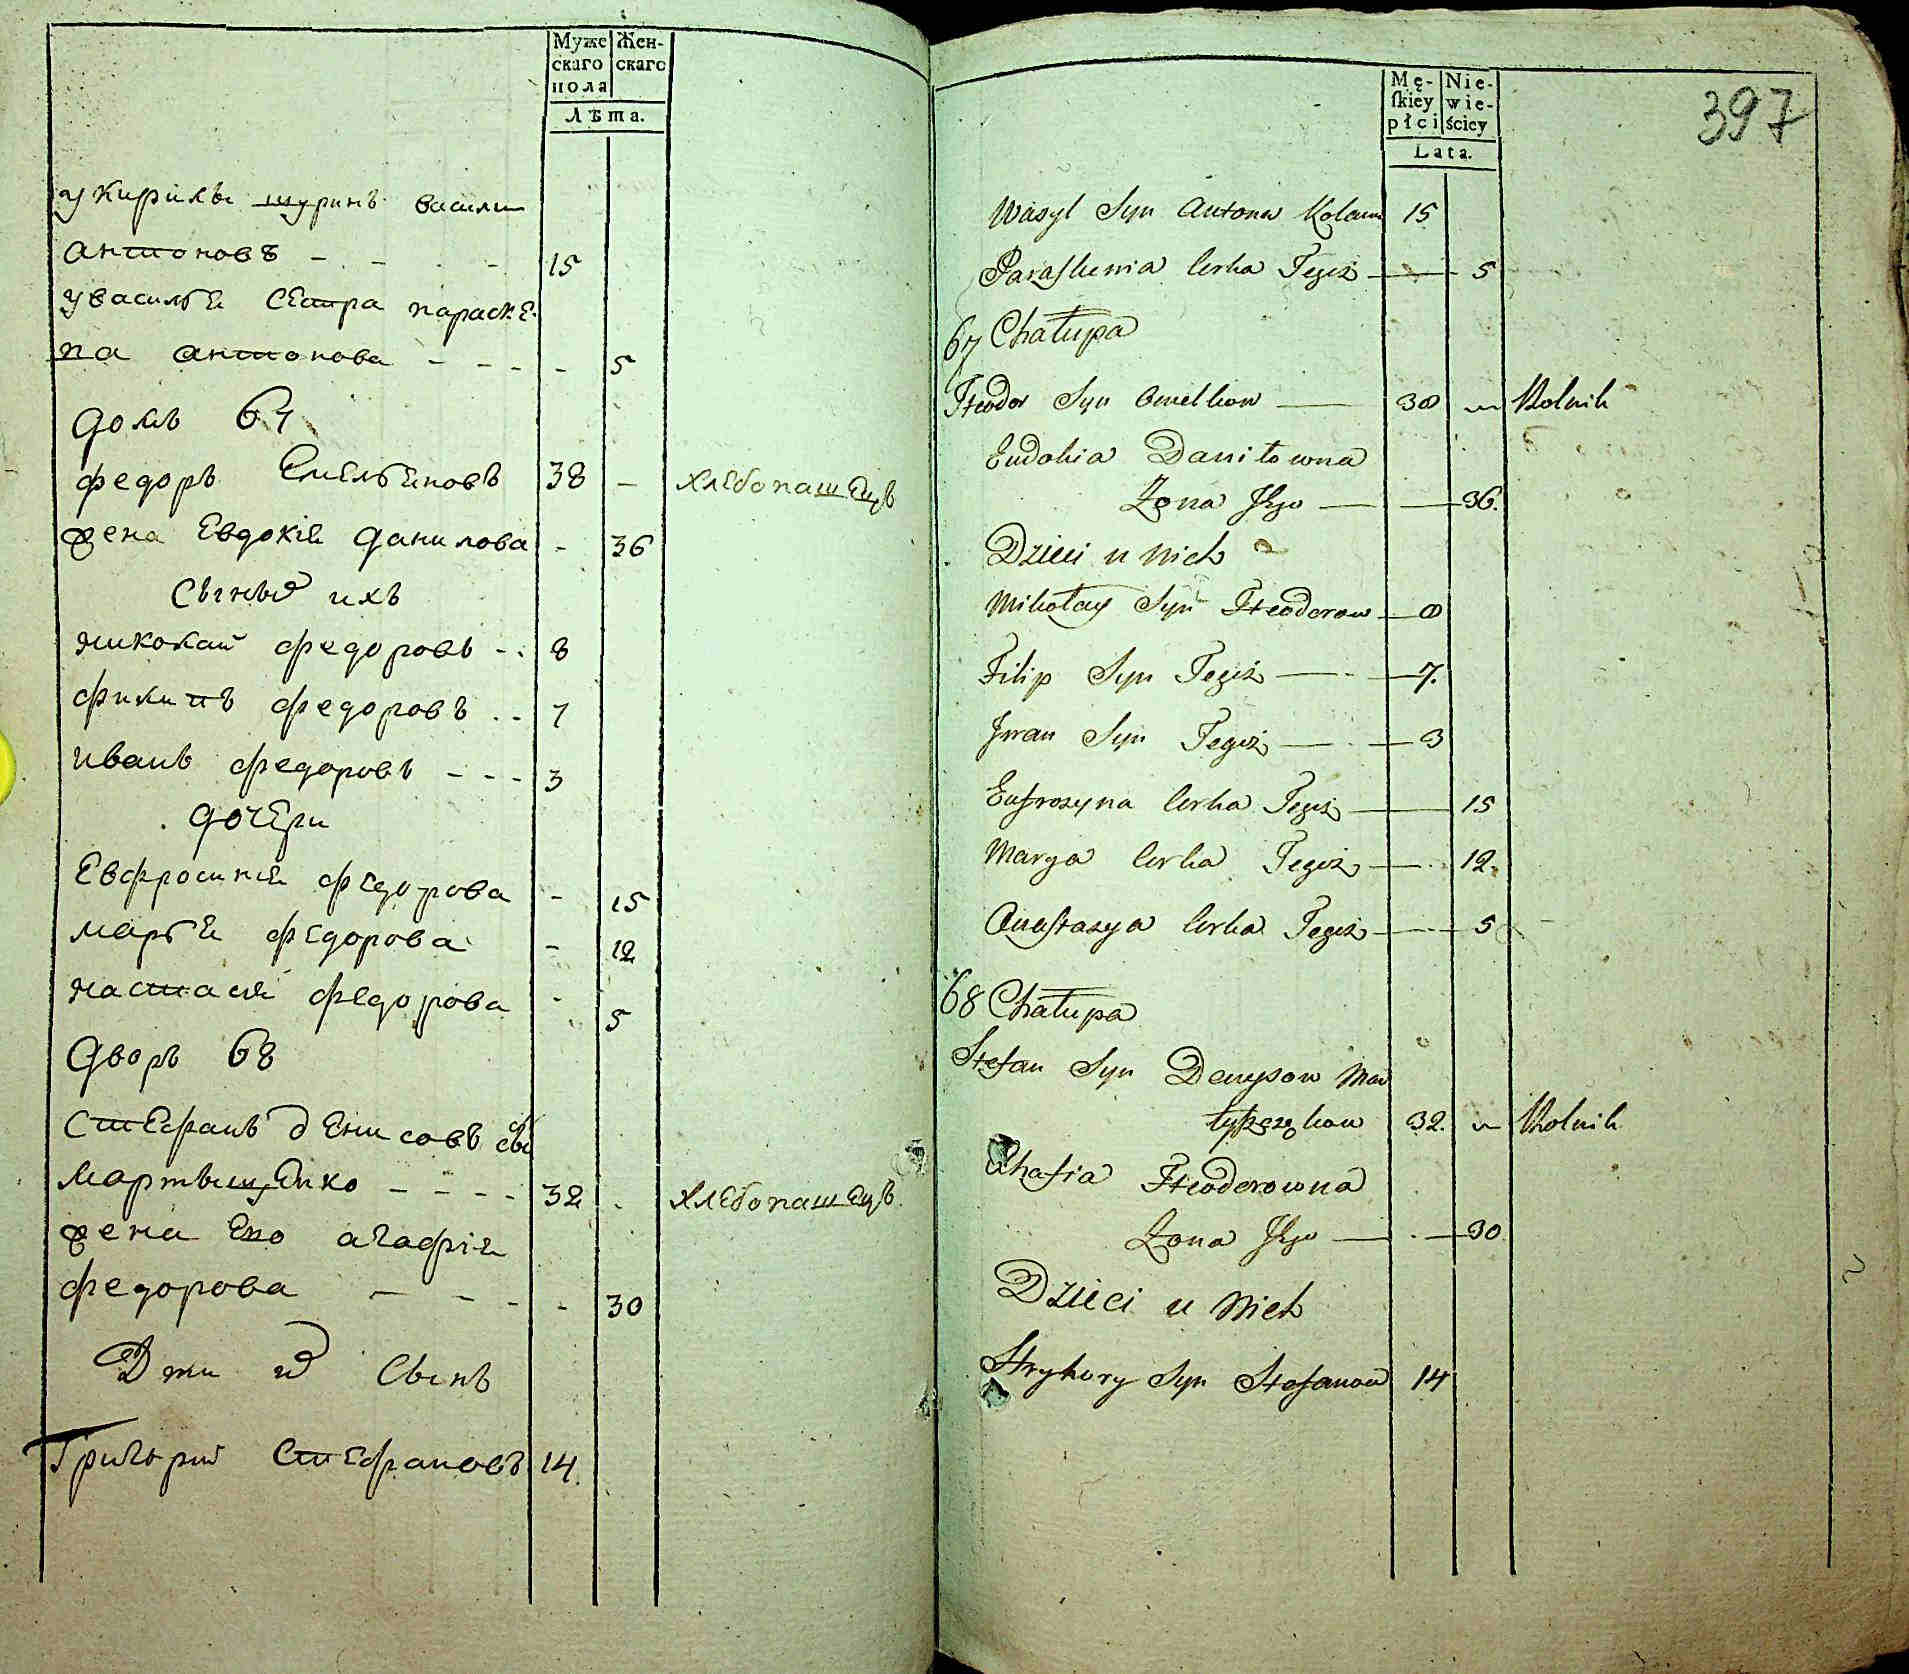 Муже
скаго
пола
Жен-
скаго
Лѣта.
у кирилы шуринъ василии
антоновъ - - - - 15
у василѣя сестра параске-
па антонова - - - - 5
домъ 67
федоръ Емелѣяновъ 38 - хлебопашецъ
жена Евдокія данилова - 36
сыновя ихъ
николай федоровъ - - 8
филипъ федоровъ - - 7
иванъ федоровъ - - - 3
дочери
Евфросинія федорова - 15
марѣя федорова - 12
настасия федорова - 5
дворъ 68
стефанъ денисовъ
мартыщенко - - - - 32 - хлебопашецъ
жена Его агафія
федорова - - - - 30
сынъ
Григорий стефановъ 14
Mę-
skiey
płci
Nie-
wie-
ściey
Lata.
397
Wasyl Syn Antona 15
Paraskewia Corka Tegiż 5
67 Chałupa
Fteodor Syn Omelkow 38 Rolnik
Eudokia Daniłowna
Zona Jego 36.
Dzieci u Nich
Mikołay Syn Fteodorow 8
Filip Syn Tegiż 7.
Jwan Syn Tegiż 3
Eufrozyna Corka Tegiż 15
Marya Corka Tegiż 12.
Anastazya Corka Tegiż 5
68 Chałupa
Stefan Syn Denysow Mar
32. Rolnik
Ahafia Fteodorowna
Zona Jego 30
Dzieci u Nich
Hryhory Syn Stefanow 14